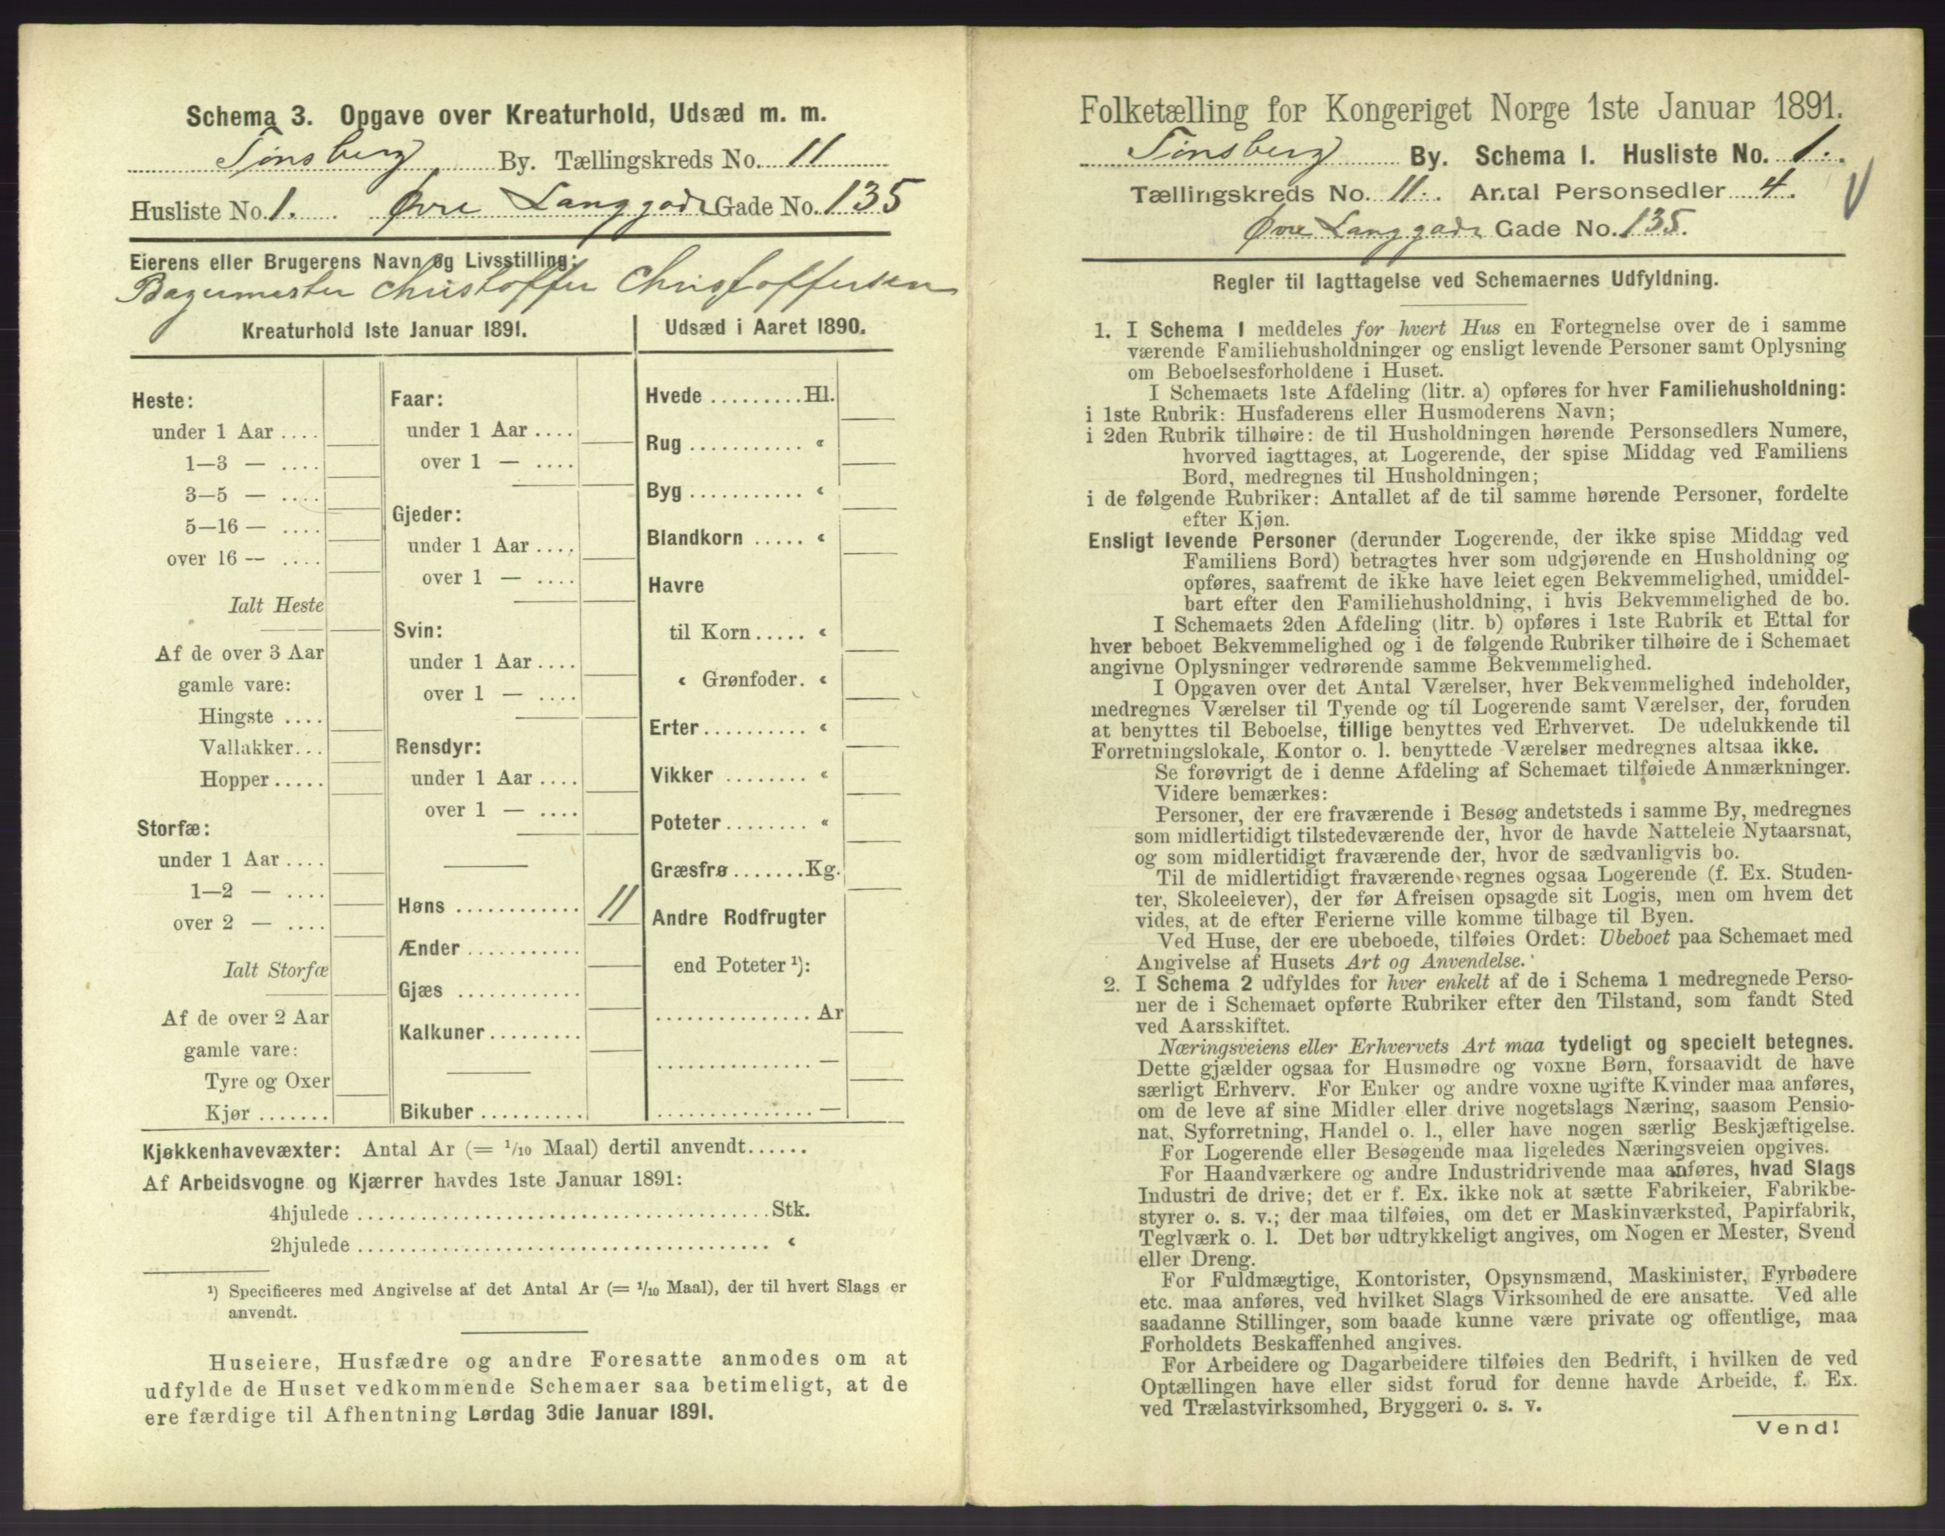 Schema 3. Opgave over Kreaturhold, Udsæd m. m.
Tønsberg By. Tællingskreds No. 11
Husliste No. 1. Øvre Langgade Gade No. 135
Eierens eller Brugerens Navn og Livsstilling:
Bagermester Christoffer Christoffersen
Kreaturhold 1ste Januar 1891.
Heste:
under 1 Aar ....
1—3 — ....
3—5 — ....
5—16 — ....
over 16 — ....
Ialt Heste
Af de over 3 Aar
gamle vare:
Hingste ....
Vallakker...
Hopper.....
Storfæ:
under 1 Aar ....
1—2 — ....
over 2 — ....
Ialt Storfæ
Af de over 2 Aar
gamle vare:
Tyre og Oxer
Kjør .......
Faar:
under 1 Aar ....
over 1 — ....
Gjeder:
under 1 Aar ....
over 1 — ....
Svin:
under 1 Aar ....
over 1 — ....
Rensdyr:
under 1 Aar ....
over 1 — ....
Høns ............ 11
Ænder ...........
Gjæs ............
Kalkuner.........
Bikuber ..........
Udsæd i Aaret 1890.
Hvede .........Hl.
Rug ........... «
Byg ........... «
Blandkorn ..... «
Havre
til Korn ..... «
« Grønfoder. «
Erter.......... «
Vikker ........ «
Poteter........ «
Græsfrø.......Kg.
Andre Rodfrugter
end Poteter ¹):
............... Ar
............... —
............... —
Kjøkkenhavevæxter: Antal Ar (= 1/10 Maal) dertil anvendt......
Af Arbeidsvogne og Kjærrer havdes 1ste Januar 1891:
4hjulede ........................................Stk.
2hjulede ........................................ «
¹) Specificeres med Angivelse af det Antal Ar (= 1/10 Maal), der til hvert Slags er
anvendt.
Huseiere, Husfædre og andre Foresatte anmodes om at
udfylde de Huset vedkommende Schemaer saa betimeligt, at de
ere færdige til Afhentning Lørdag 3die Januar 1891.
Folketælling for Kongeriget Norge 1ste Januar 1891.
Tønsberg By. Schema I. Husliste No. 1.
Tællingskreds No. 11. Antal Personsedler 4.
Øvre Langgade Gade No. 135.
Regler til Iagttagelse ved Schemaernes Udfyldning.
1. I Schema 1 meddeles for hvert Hus en Fortegnelse over de i samme
værende Familiehusholdninger og ensligt levende Personer samt Oplysning
om Beboelsesforholdene i Huset.
I Schemaets 1ste Afdeling (litr. a) opføres for hver Familiehusholdning:
i 1ste Rubrik: Husfaderens eller Husmoderens Navn;
i 2den Rubrik tilhøire: de til Husholdningen hørende Personsedlers Numere,
hvorved iagttages, at Logerende, der spise Middag ved Familiens
Bord, medregnes til Husholdningen;
i de følgende Rubriker: Antallet af de til samme hørende Personer, fordelte
efter Kjøn.
Ensligt levende Personer (derunder Logerende, der ikke spise Middag ved
Familiens Bord) betragtes hver som udgjørende en Husholdning og
opføres, saafremt de ikke have leiet egen Bekvemmelighed, umiddel-
bart efter den Familiehusholdning, i hvis Bekvemmelighed de bo.
I Schemaets 2den Afdeling (litr. b) opføres i 1ste Rubrik et Ettal for
hver beboet Bekvemmelighed og i de følgende Rubriker tilhøire de i Schemaet
angivne Oplysninger vedrørende samme Bekvemmelighed.
I Opgaven over det Antal Værelser, hver Bekvemmelighed indeholder,
medregnes Værelser til Tyende og til Logerende samt Værelser, der, foruden
at benyttes til Beboelse, tillige benyttes ved Erhvervet. De udelukkende til
Forretningslokale, Kontor o. l. benyttede Værelser medregnes altsaa ikke.
Se forøvrigt de i denne Afdeling af Schemaet tilføiede Anmærkninger.
Videre bemærkes:
Personer, der ere fraværende i Besøg andetsteds i samme By, medregnes
som midlertidigt tilstedeværende der, hvor de havde Natteleie Nytaarsnat,
og som midlertidigt fraværende der, hvor de sædvanligvis bo.
Til de midlertidigt fraværende regnes ogsaa Logerende (f. Ex. Studen-
ter, Skoleelever), der før Afreisen opsagde sit Logis, men om hvem det
vides, at de efter Ferierne ville komme tilbage til Byen.
Ved Huse, der ere ubeboede, tilføies Ordet: Ubeboet paa Schemaet med
Angivelse af Husets Art og Anvendelse.
2. I Schema 2 udfyldes for hver enkelt af de i Schema 1 medregnede Perso-
ner de i Schemaet opførte Rubriker efter den Tilstand, som fandt Sted
ved Aarsskiftet.
Næringsveiens eller Erhvervets Art maa tydeligt og specielt betegnes.
Dette gjælder ogsaa for Husmødre og voxne Børn, forsaavidt de have
særligt Erhverv. For Enker og andre voxne ugifte Kvinder maa anføres,
om de leve af sine Midler eller drive nogetslags Næring, saasom Pensio-
nat, Syforretning, Handel o. l., eller have nogen særlig Beskjæftigelse.
For Logerende eller Besøgende maa ligeledes Næringsveien opgives.
For Haandværkere og andre Industridrivende maa anføres, hvad Slags
Industri de drive; det er f. Ex. ikke nok at sætte Fabrikeier, Fabrikbe-
styrer o. s. v.; der maa tilføies, om det er Maskinværksted, Papirfabrik,
Teglværk o. l. Det bør udtrykkeligt angives, om Nogen er Mester, Svend
eller Dreng.
For Fuldmægtige, Kontorister, Opsynsmænd, Maskinister, Fyrbødere
etc. maa anføres, ved hvilket Slags Virksomhed de ere ansatte. Ved alle
saadanne Stillinger, som baade kunne være private og offentlige, maa
Forholdets Beskaffenhed angives.
For Arbeidere og Dagarbeidere tilføies den Bedrift, i hvilken de ved
Optællingen have eller sidst forud for denne havde Arbeide, f. Ex.
ved Trælastvirksomhed, Bryggeri o. s. v.
Vend!